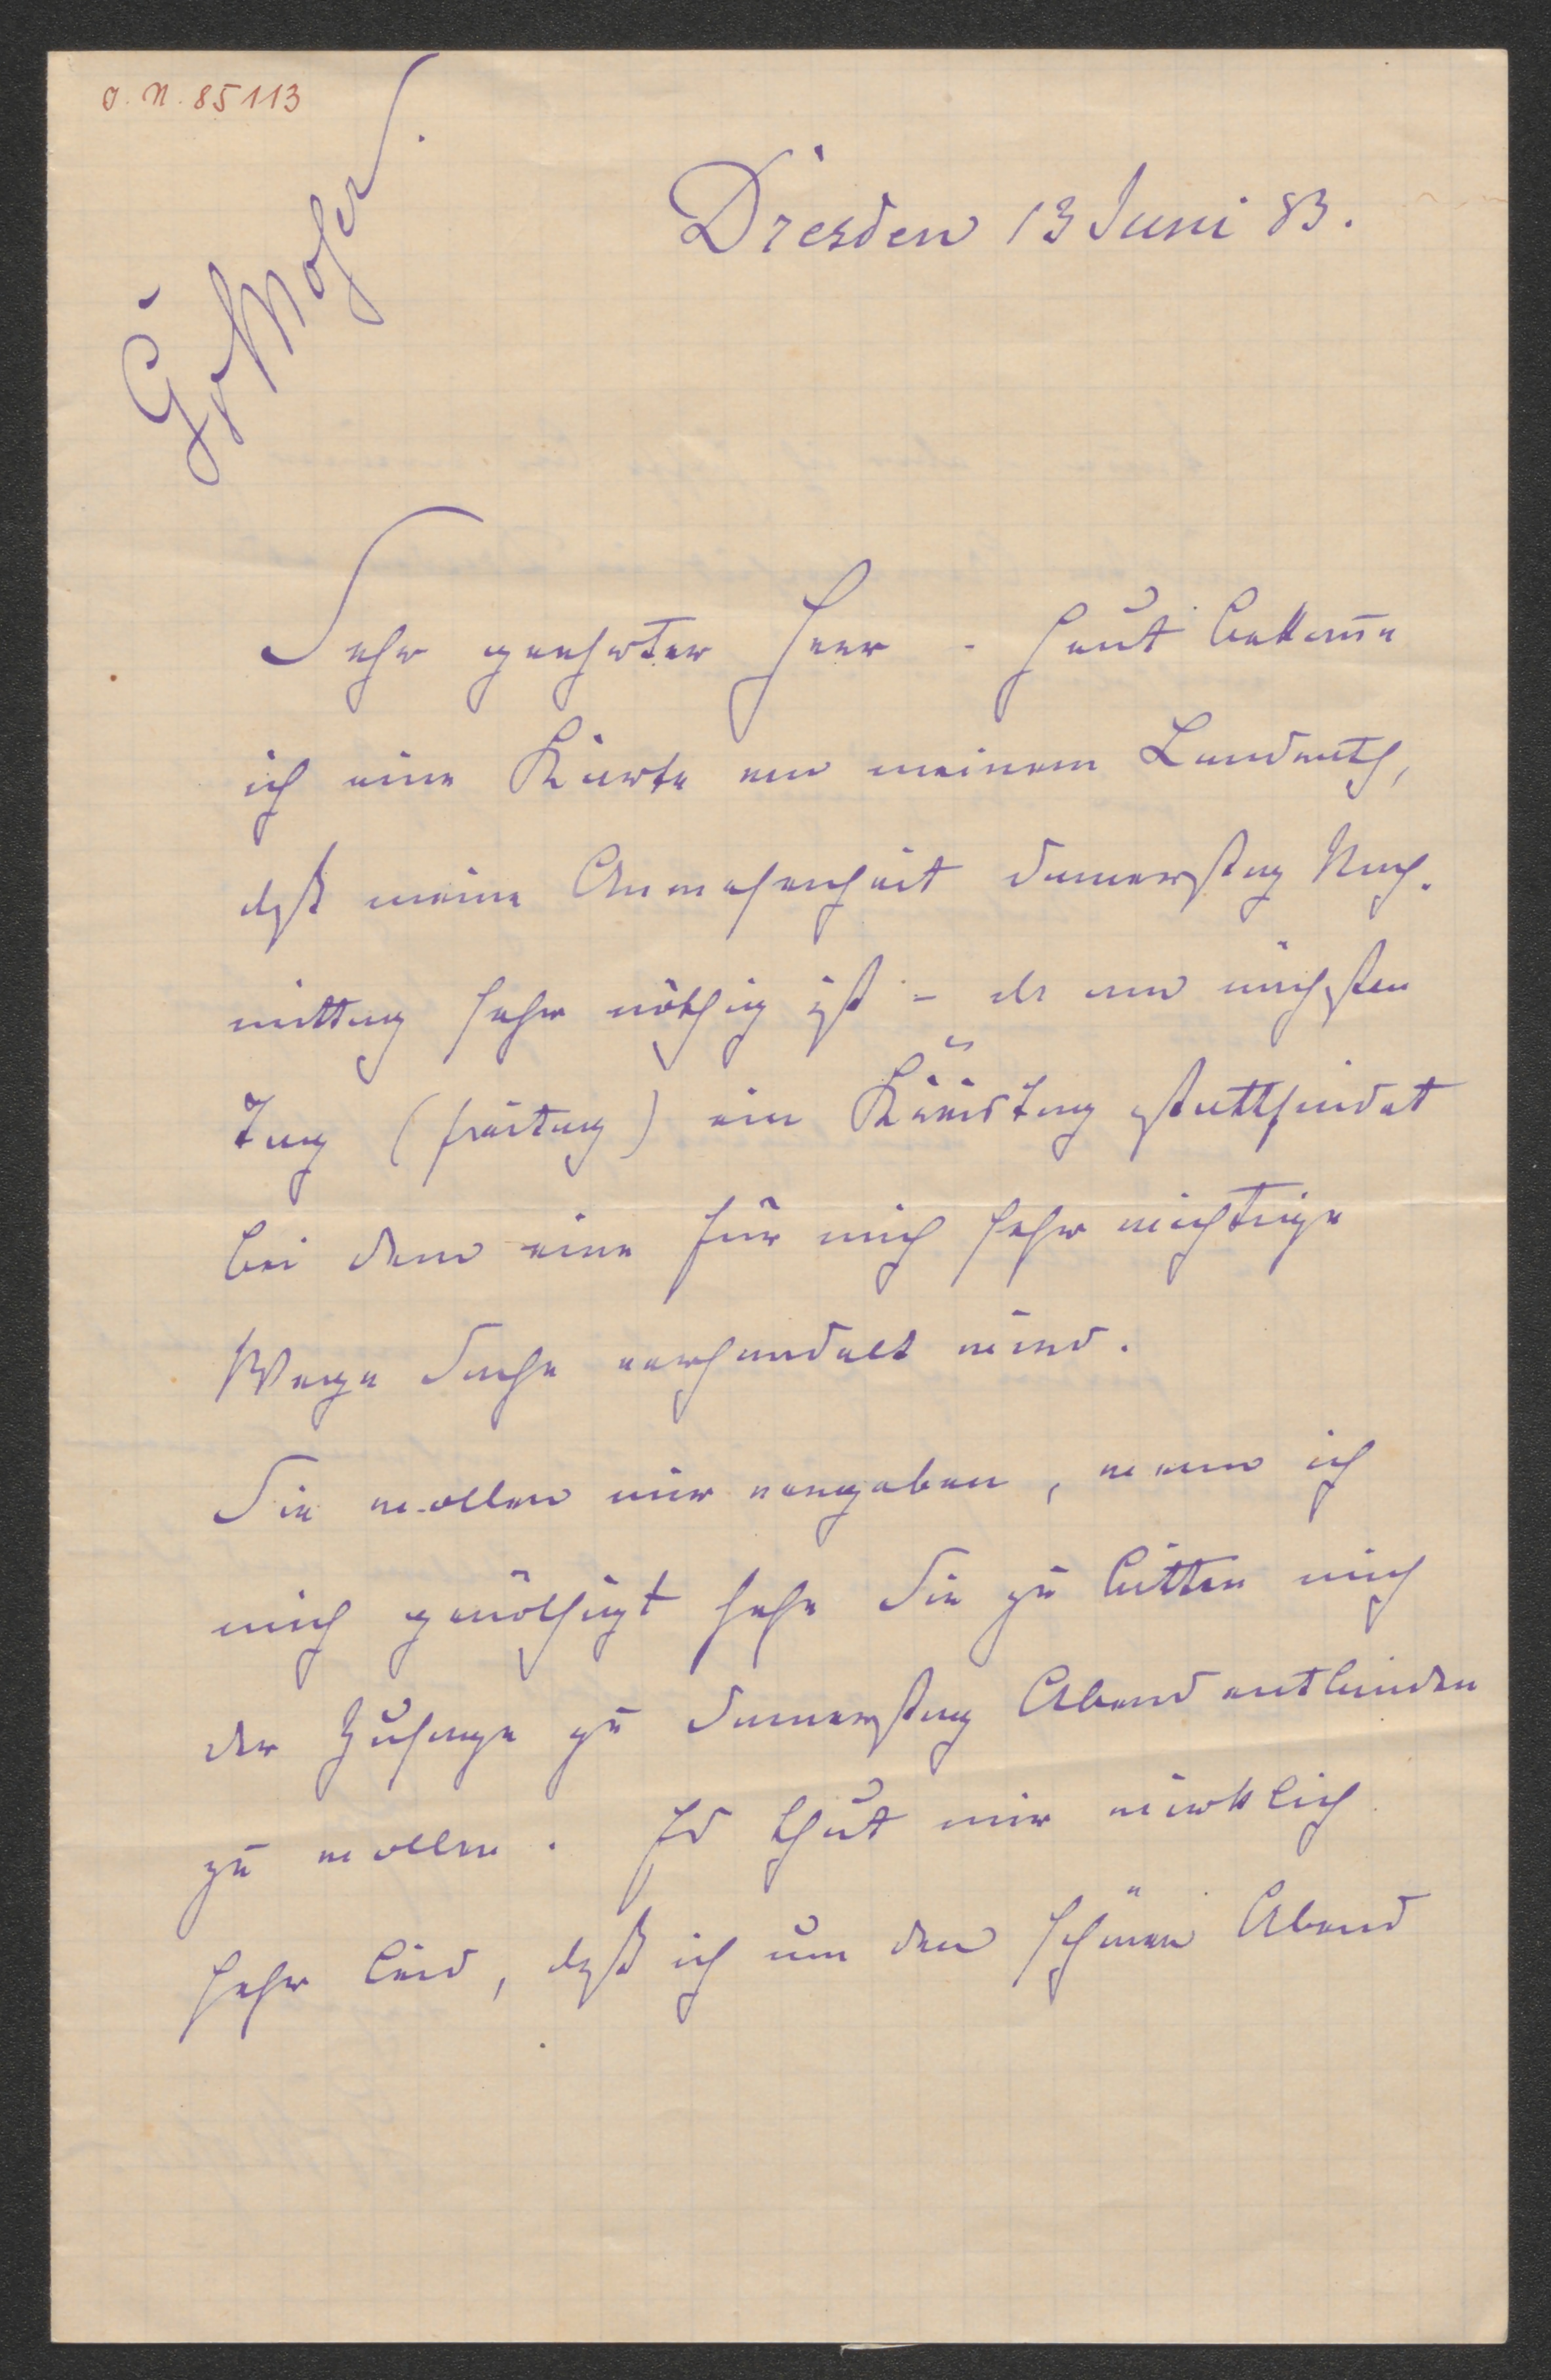 O. N. 85113
GvMoser.
Dresden 13 Juni 83.
Sehr geehrter Herr - Heut bekomme
ich eine Karte von meinem Landrath,
daß meine Anwesenheit Donnerstag Nach-
mittag sehr nöthig ist - da am nächsten
Tag (Freitag) ein Kreistag stattfindet
bei dem eine für mich sehr wichtige
Wege Sache verhandelt wird.
Sie wollen mir vergeben, wenn ich
mich genöthigt sehe Sie zu bitten mich
der Zusage zu Donnerstag Abend entbinden
zu wollen. Es thut mir wirklich
sehr leid, daß ich um den schönen Abend